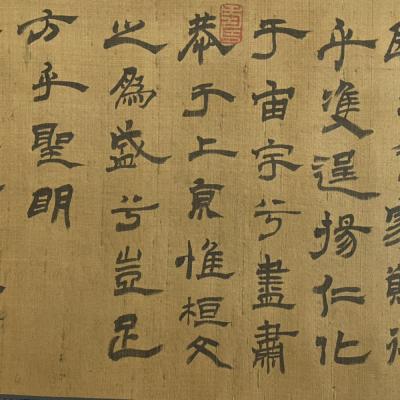 家
乎隻逞揚仁化
于宙宇兮盡肅
恭于上京惟桓文
之為盛兮豈足
方乎聖明